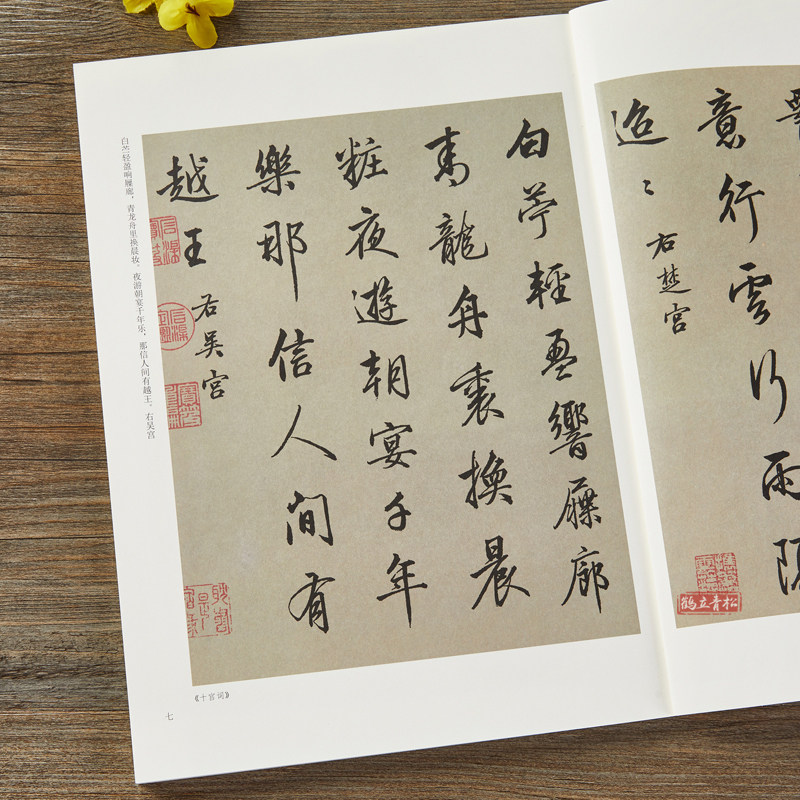 意行雲行雨隔
迢〻
右楚宮
鶴立青松
白苧輕盈響屧廊
青龍舟裏換晨
粧夜遊朝宴千年
樂那信人間有
越王
右吳宮
白苎轻盈响屧廊，青龙舟里换晨妆。夜游朝宴千年乐，那信人间有越王。右吴宫
《十宫词》
七